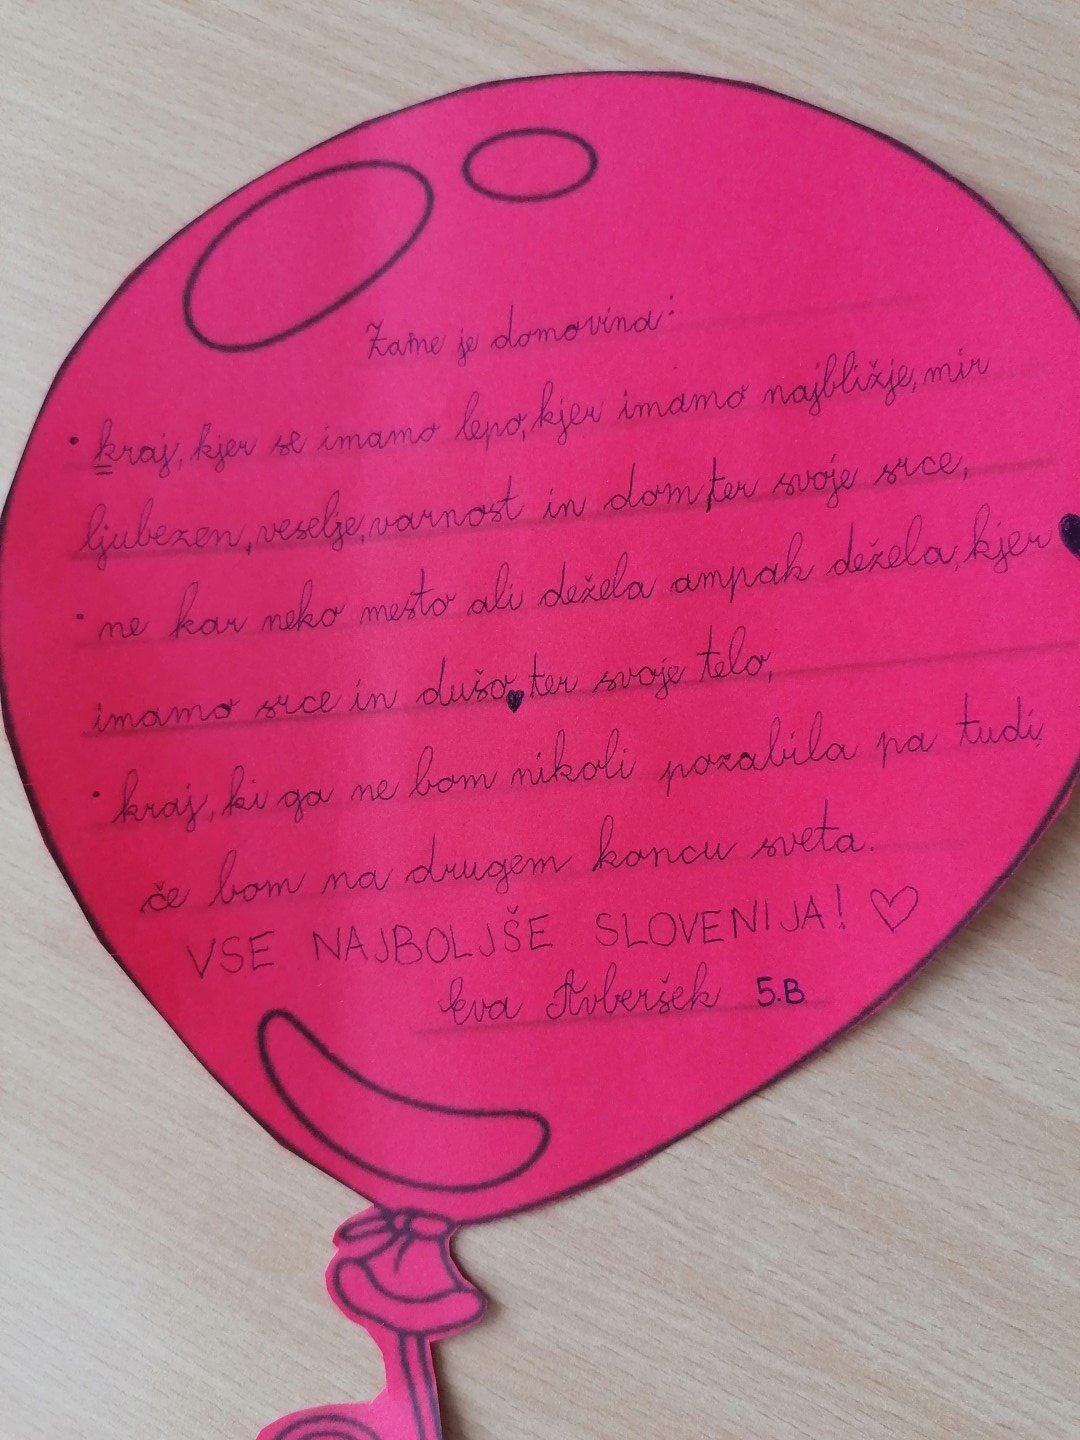 Zame je domovina:
• kraj, kjer se imamo lepo, kjer imamo najbližje, mir
ljubezen, veselje, varnost in dom, ter svoje srce,
• ne kar neko mesto ali dežela ampak dežela, kjer
imamo srce in dušo, ter svoje telo,
• kraj, ki ga ne bom nikoli pozabila pa tudi,
če bom na drugem koncu sveta.
VSE NAJBOLJŠE SLOVENIJA! ♡
Eva Avberšek 5.B